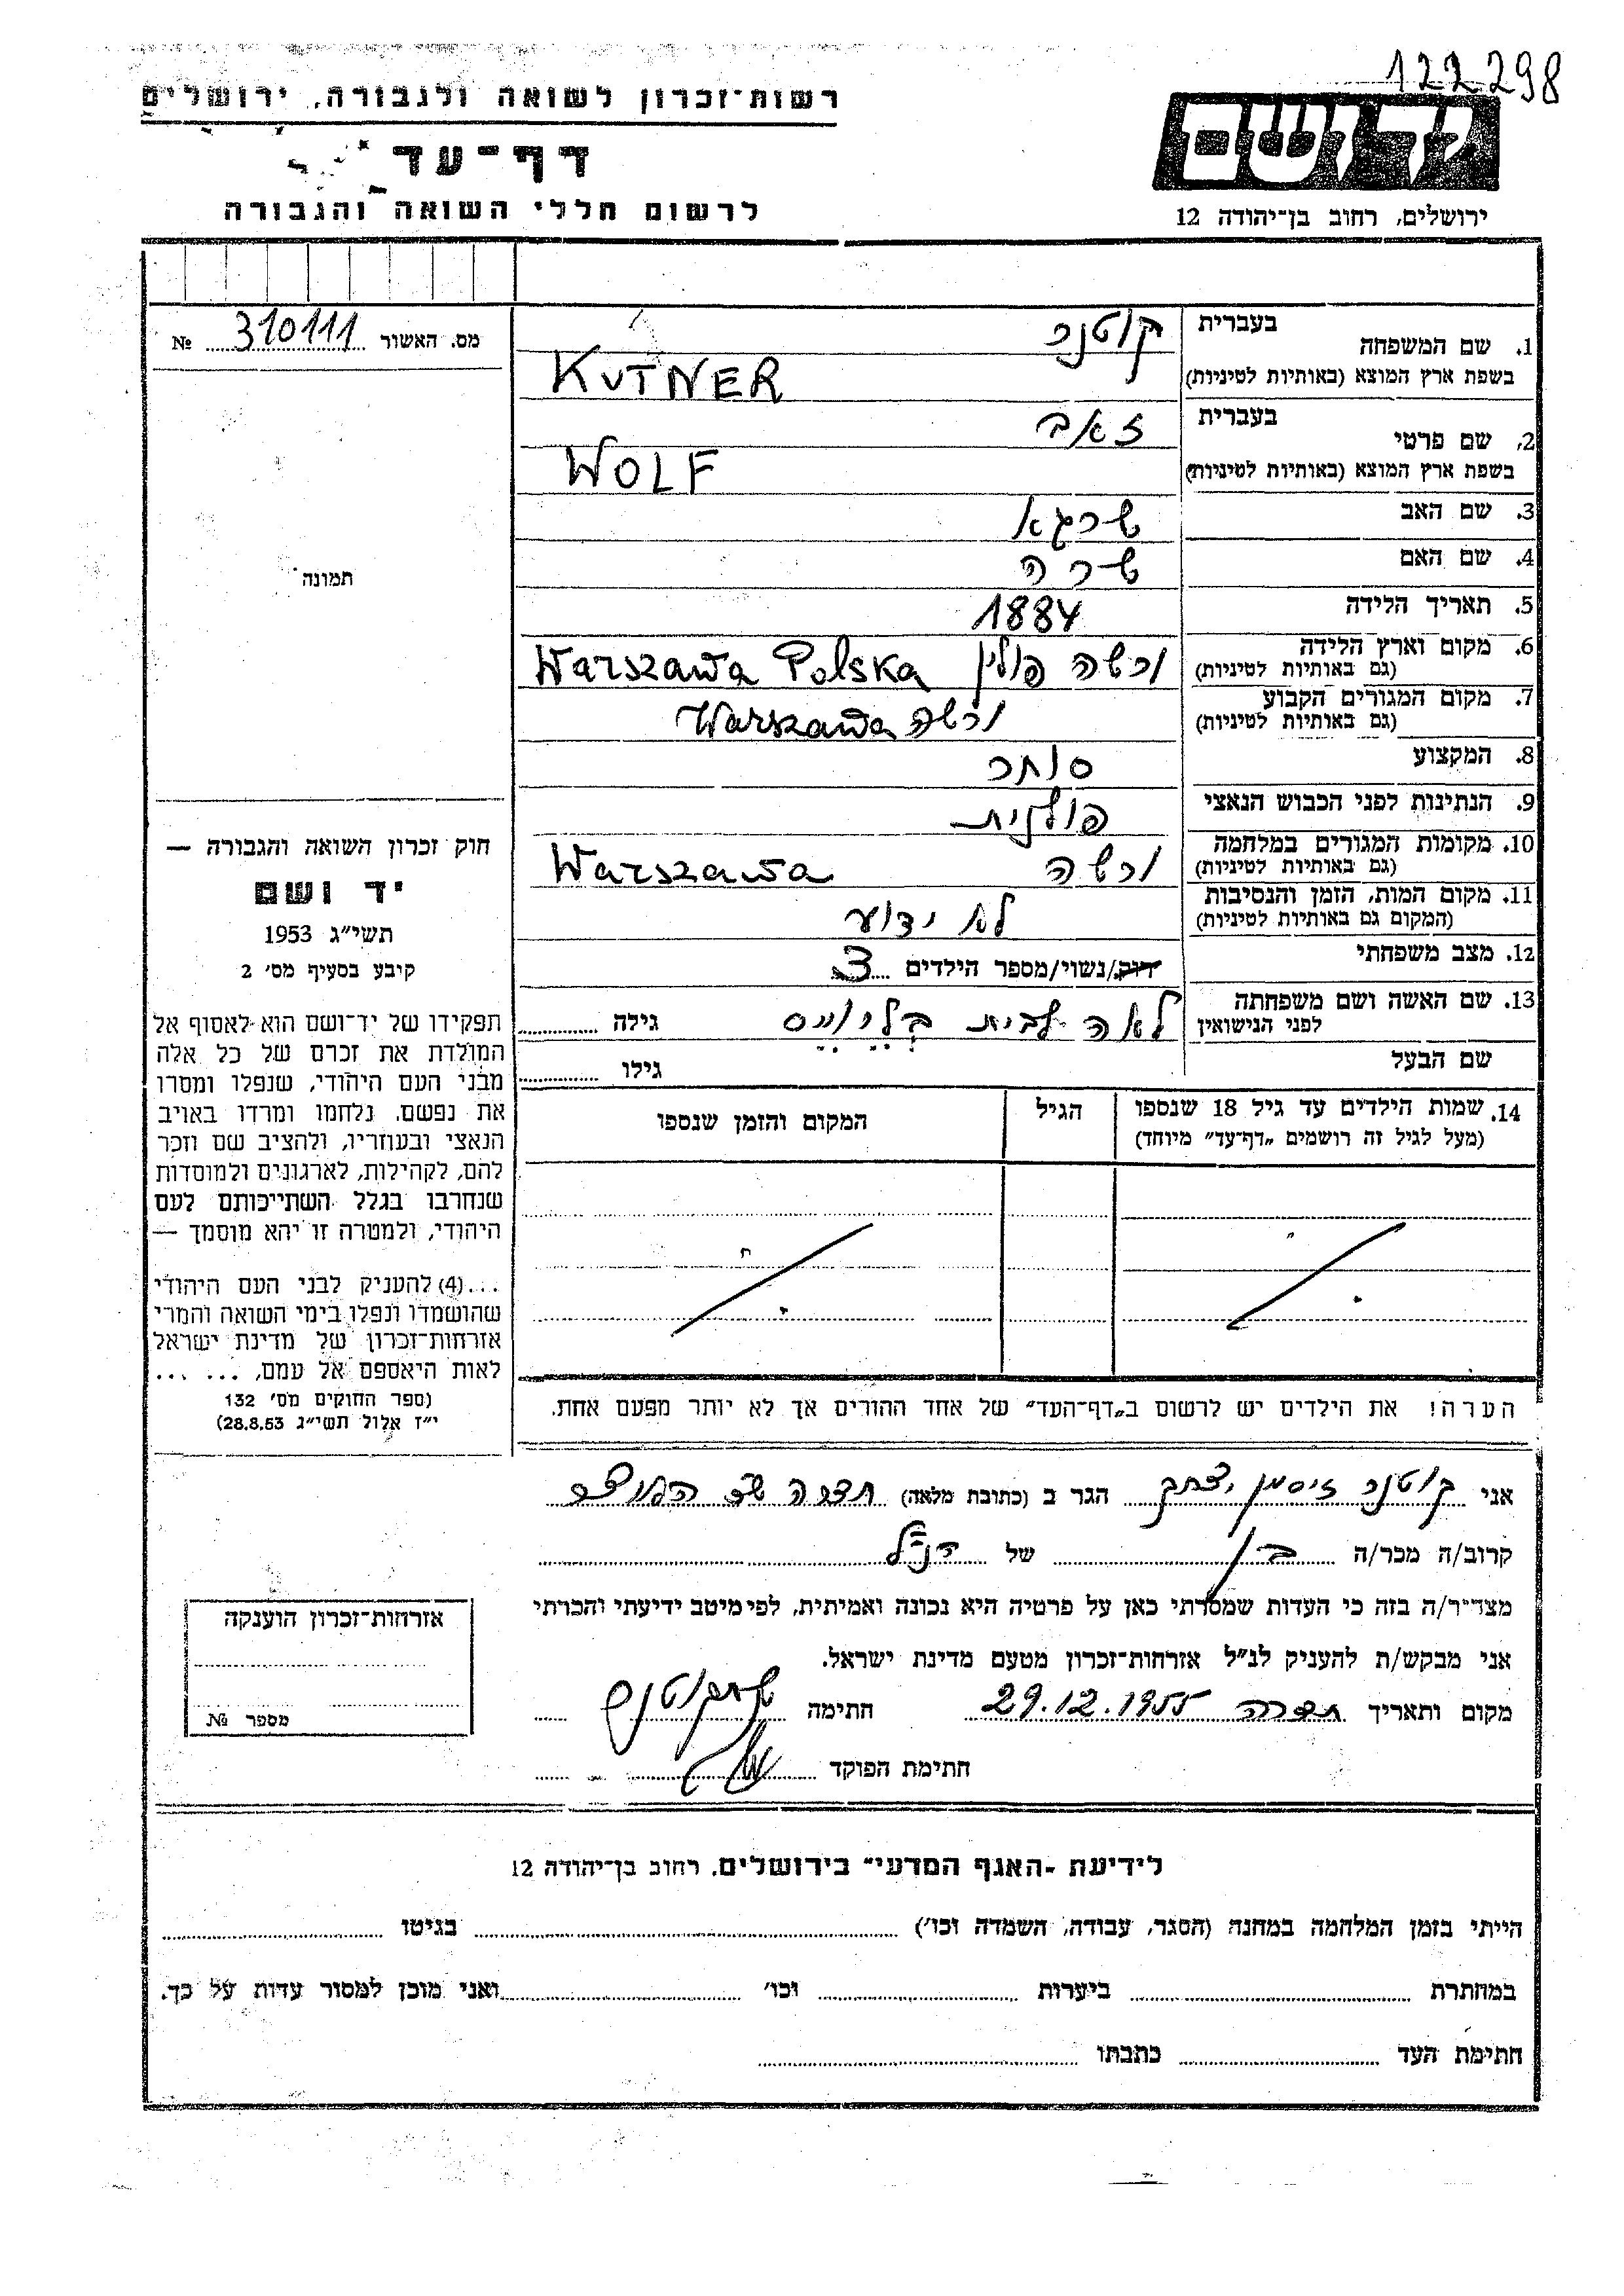 122298
רשות־זכרון לשואה ולגבורה, ירושלים
דף־עד
לרשום חללי השואה והגבורה
יד ושם
ירושלים, רחוב בן־יהודה 12
מס. האשור 310111 №
תמונה
חוק זכרון השואה והגבורה —
יד ושם
תשי״ג 1953
קיבע בסעיף מס׳ 2
תפקידו של יד־ושם הוא לאסוף אל
המולדת את זכרם של כל אלה
מבני העם היהודי, שנפלו ומסרו
את נפשם, נלחמו ומרדו באויב
הנאצי ובעוזריו, ולהציב שם וזכר
להם, לקהילות, לארגונים ולמוסדות
שנחרבו בגלל השתייכותם לעם
היהודי, ולמטרה זו יהא מוסמך —
...(4) להעניק לבני העם היהודי
שהושמדו ונפלו בימי השואה והמרי
אזרחות־זכרון של מדינת ישראל
לאות היאספם אל עמם, ... ...
(ספר החוקים מס׳ 132
י״ז אלול תשי״ג 28.8.53)
1. שם המשפחה בעברית קוטנר
בשפת ארץ המוצא (באותיות לטיניות) KUTNER
2. שם פרטי בעברית זאב
בשפת ארץ המוצא (באותיות לטיניות) WOLF
3. שם האב שרגא
4. שם האם שרה
5. תאריך הלידה 1884
6. מקום וארץ הלידה (גם באותיות לטיניות) ורשה פולין Warszawa Polska
7. מקום המגורים הקבוע (גם באותיות לטיניות) ורשה Warszawa
8. המקצוע סוחר
9. הנתינות לפני הכבוש הנאצי פולנית
10. מקומות המגורים במלחמה (גם באותיות לטיניות) ורשה Warszawa
11. מקום המות, הזמן והנסיבות (המקום גם באותיות לטיניות) לא ידוע
12. מצב משפחתי רווק/נשוי/מספר הילדים 3
13. שם האשה ושם משפחתה לפני הנישואין לאה לבית גילה
שם הבעל גילו
14. שמות הילדים עד גיל 18 שנספו הגיל המקום והזמן שנספו
(מעל לגיל זה רושמים „דף־עד״ מיוחד)
הערה! את הילדים יש לרשום ב„דף־העד״ של אחד ההורים אך לא יותר מפעם אחת.
אני קוטנר זיסמן יצחק הגר ב (כתובת מלאה) חדרה
קרוב/ה מכר/ה בן של הנ״ל
מצהיר/ה בזה כי העדות שמסרתי כאן על פרטיה היא נכונה ואמיתית, לפי מיטב ידיעתי והכרתי
אני מבקש/ת להעניק לנ״ל אזרחות־זכרון מטעם מדינת ישראל.
מקום ותאריך חדרה 29.12.1955 חתימה
חתימת הפוקד
אזרחות־זכרון הוענקה
מספר №
לידיעת „האגף המדעי״ בירושלים, רחוב בן־יהודה 12
הייתי בזמן המלחמה במחנה (הסגר, עבודה, השמדה וכו׳) בגיטו
במחתרת ביערות וכו׳ ואני מוכן למסור עדות על כך.
חתימת העד כתבתו